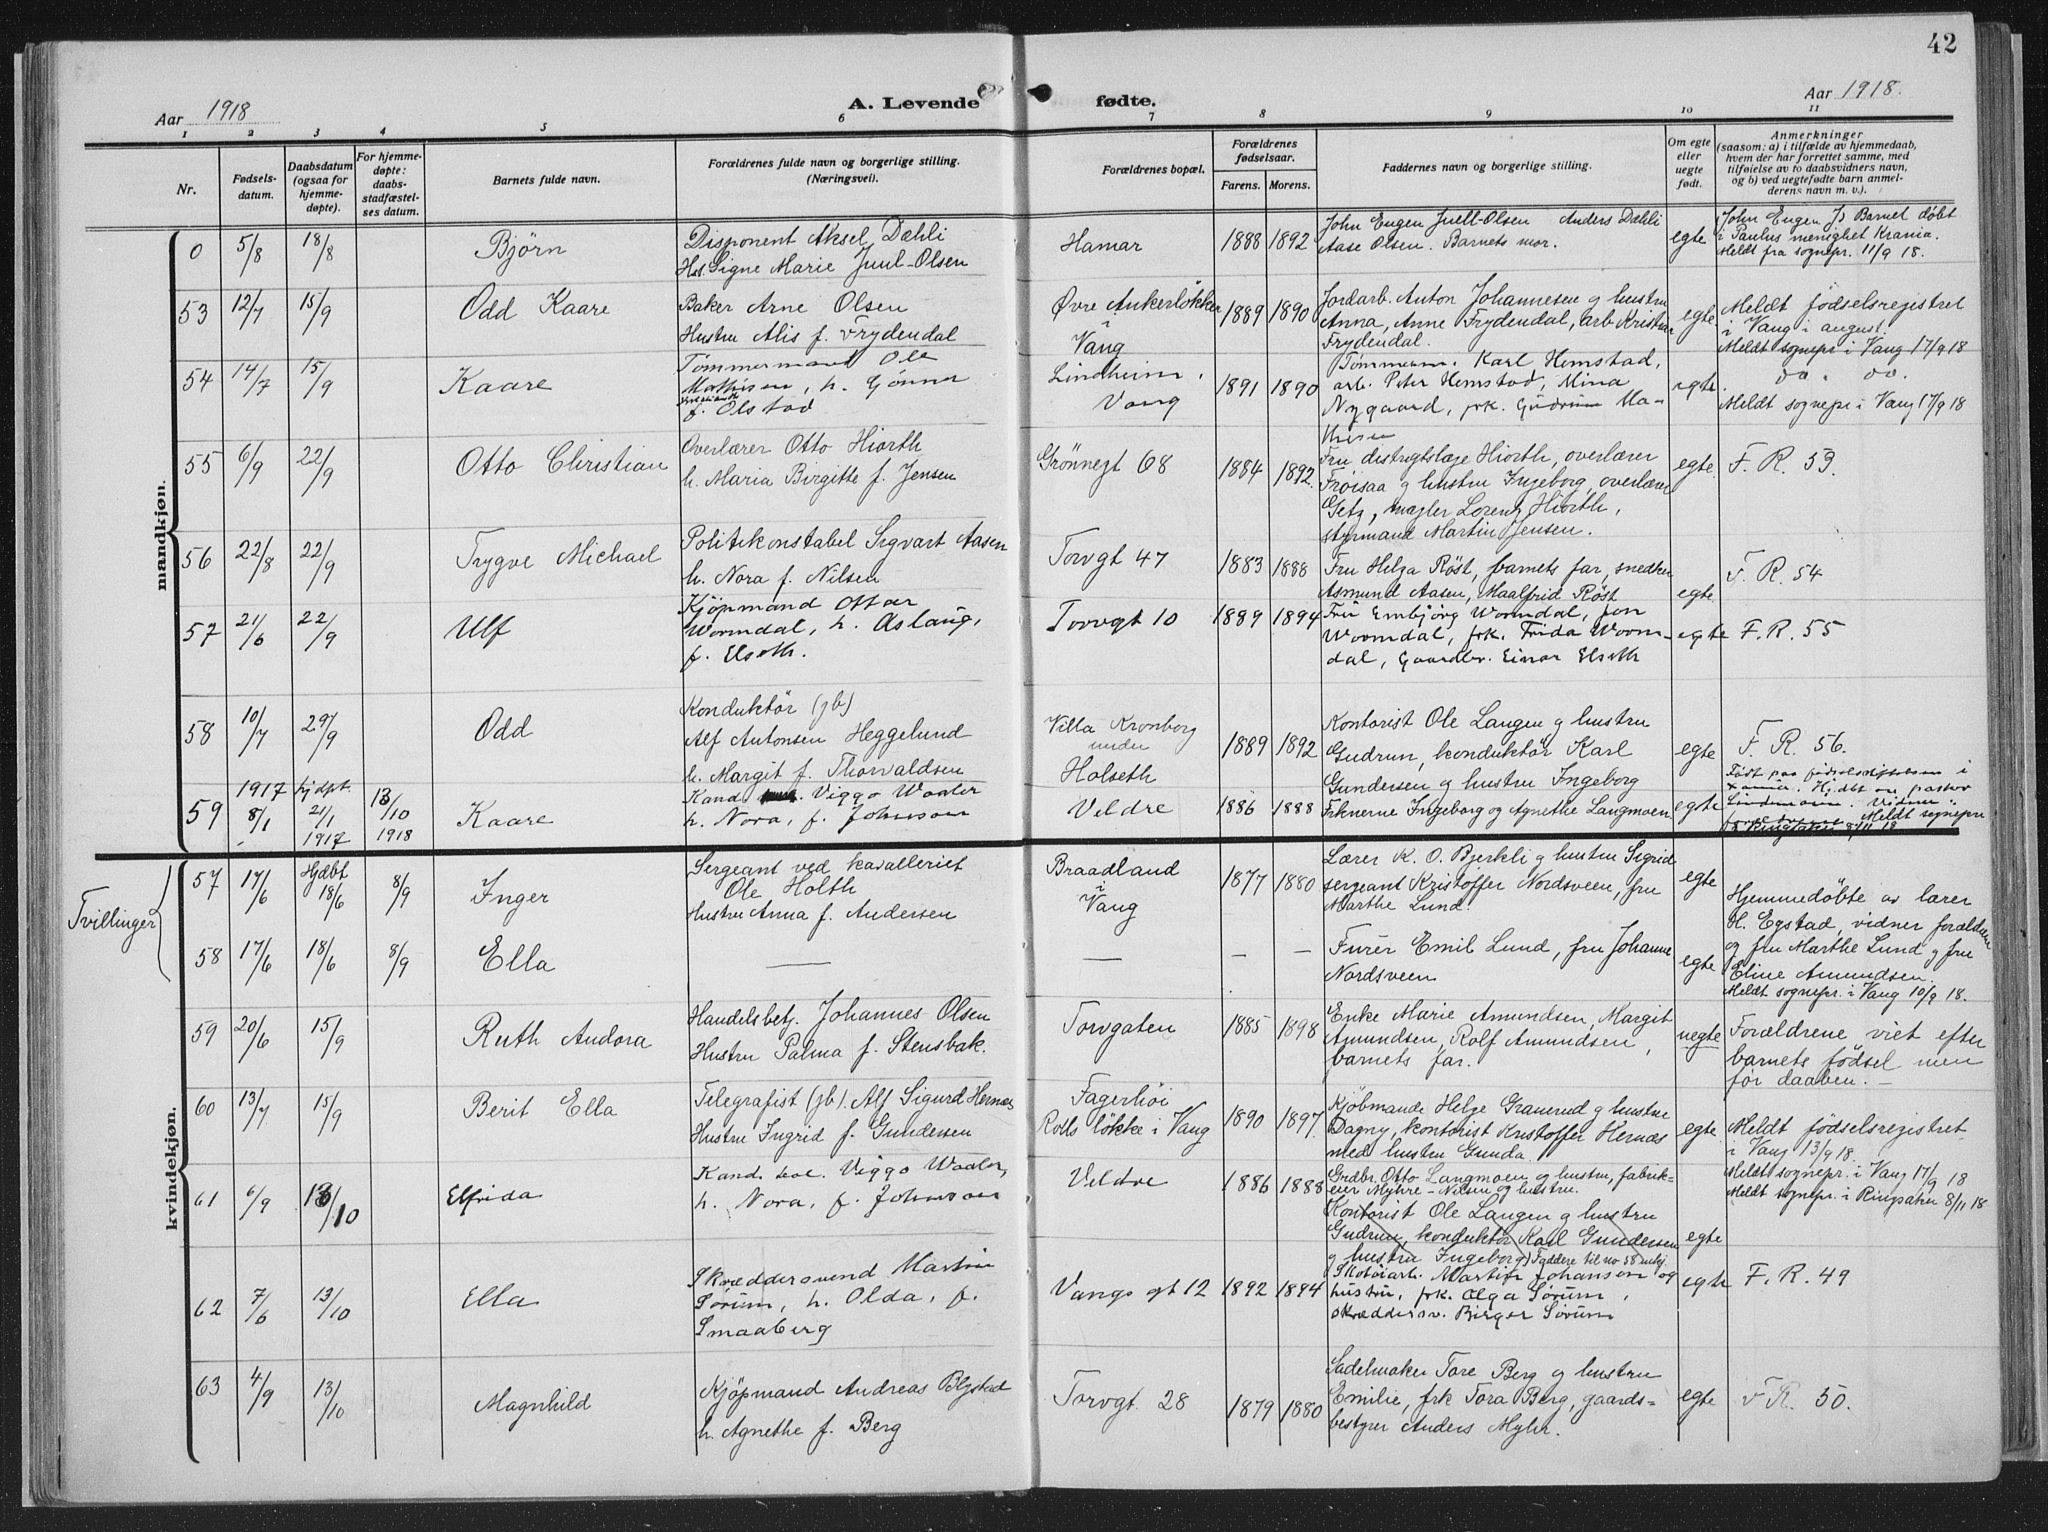 42
Aar 1918
A. Levende fødte.
Aar 1918.
1 2 3 4 5 6 7 8 9 10 11
Nr.
Fødsels-
datum.
Daabsdatum
(ogsaa for
hjemme-
døpte).
For hjemme-
døpte:
daabs-
stadfæstel-
ses datum.
Barnets fulde navn.
Forældrenes fulde navn og borgerlige stilling.
(Næringsvei).
Forældrenes bopæl.
Forældrenes
fødselsaar.
Farens. Morens.
Faddernes navn og borgerlige stilling.
Om egte
eller
uegte
født.
Anmerkninger
(saasom: a) i tilfælde av hjemmedaab,
hvem der har forrettet samme, med
tilføielse av to daabsvidners navn,
og b) ved uegtefødte barn anmel-
derens navn m. v.).
mandkjøn.
0 5/8 18/8 Bjørn
Disponent Aksel Dæhli
Hus. Signe Marie Juul-Olsen
Hamar 1888 1892
John Eugen Juell-Olsen Anders Dæhli
Aase Olsen. Barnets mor.
egte
Barnet døbt
i Paulus menighet Krania.
Meldt fra sognepr. 11/9 18.
53 12/7 15/9 Odd Kaare
Baker Arne Olsen
Hustru Alis f. Frydendal
Øvre Ankerløkken
i
Vang
1889 1890
Jordarb. Anton Johannesen g hustru
Anna, Anne Frydendal, arb Kristian
Frydendal.
egte
Meldt fødselsregistret
i Vang i august.
Meldt sognepr i Vang 17/9 18
54 14/7 15/9 Kaare
Tømmermand Ole
Mathisen, h. Gønner
f. Olstad
Lindheim,
Vang
1891 1890
Tømmerm. Karl Hemstad,
arb. Peter Hemstad, Mina
Nygaard, frk. Gudrun Ma-
thisen
egte
do. do.
Meldt sognepr i Vang 17/9 18
55 6/9 22/9 Otto Christian
Overlærer Otto Hiorth
h. Maria Birgitte f. Jensen
Grønnegt 68 1884 1892.
Fru distrigtslæge Hiorth, overlærer
Frøisaa g hustru Ingeborg, overlærer
Getz, mægler Lorenz Hiorth,
styrmand Martin Jensen.
egte F. R. 53.
56 22/8 22/9 Trygve Michael
Politikonstabel Sigvart Aasen
h. Nora f. Nilsen
Torvgt 47 1883 1888
Fru Helga Røst, barnets far, snedker
Asmund Aasen, Maalfrid Røst
egte F. R. 54
57 21/6 22/9 Ulf
Kjøpmand Ottar
Wormdal, h. Aslaug,
f. Elseth.
Torvgt 10 1889 1894
Fru Embjørg Wormdal, Jon
Wormdal, frk. Frida Worm-
dal, Gaardbr. Einar Elseth
egte F. R. 55
58 10/7 29/9 Odd
Konduktør (jb)
Alf Antonsen Heggelund
h. Margit f. Thorvaldsen
Villa Kronborg
under
Holseth
1889 1892
Kontorist Ole Langen g hustru
Gudrun, konduktør Karl
Gundersen g hustru Ingeborg
egte F. R. 56.
59 1917 8/1 hjdpt. 21/1 1917 13/10 1918 Kaare
Kand. Viggo Waaler
h. Nora, f. Johnson
Veldre 1886 1888
Frknerne Ingeborg og Agnethe Langmoen
egte
Født paa fødselsstiftelsen i
Xania. Hj.dbt av pastor
Lindemann. Vidner:
Meldt sognepr
i Ringsaker 8/11 18
kvindekjøn.
Tvillinger
57 17/6 Hjdbt 18/6 8/9 Inger
Sergeant ved kavalleriet
Ole Holth
Hustru Anna f. Andersen
Braadland
i
Vang
1877 1880
Lærer K. O. Bjerkli g hustru Sigrid
sergeant Kristoffer Nordsveen, fru
Marthe Lund.
egte
Hjemmedøbte av lærer
H. Egstad, vidner forældrene
og fru Marthe Lund g fru
Eline Amundsen.
Meldt sognepr. i Vang 10/9 18.
58 17/6 18/6 8/9 Ella
— — – –
Furér Emil Lund, fru Johanne
Nordsveen
egte
59 20/6 15/9 Ruth Audora
Handelsbetj. Johannes Olsen
Hustru Palma f. Stensbak.
Torvgaten 1885 1898
Enke Marie Amundsen, Margit
Amundsen, Rolf Amundsen,
barnets far.
uegte
Forældrene viet efter
barnets fødsel men
før daaben. —
60 13/7 15/9 Berit Ella
Telegrafist (jb). Alf Sigurd Hernæs
Hustru Ingrid f. Gundersen
Fagerhøi
Rolls løkke i Vang
1890 1897.
Kjøbmande Helge Granerud g hustru
Dagny, kontorist Kristoffer Hernæs
med hustru Gunda.
egte
Meldt fødselsregistret
i Vang 13/9 18.
Meldt sognepr. i Vang 17/9 18
61 6/9 13/10 Elfrida
Kand. Viggo Waaler,
h. Nora, f. Johnson
Veldre 1886 1888
Grdbr. Otto Langmoen og hustru, fabrik-
eier Myhre-Nilsen og hustru.
Kontorist Ole Langen g hustru
Gudrun, konduktør Karl Gundersen
g hustru Ingeborg) Faddere til no 58
egte
Meldt sognepr. i Ringsaker 8/11 18
62 7/6 13/10 Ella
Skræddersvend Martin
Sørum, h. Olda, f.
Smaaberg
Vangs gt 12 1892 1894
Skotøiarb. Martin Johansen og
hustru, frk. Olga Sørum,
skræddersv. Birger Sørum
egte F. R. 49
63 4/9 13/10 Magnhild
Kjøpmand Andreas Blystad
h. Agnethe f. Berg
Torvgt. 28 1879 1880
Sadelmaker Tore Berg g hustru
Emilie, frk Tora Berg, gaards-
bestyrer Anders Myhr.
egte F R. 50.